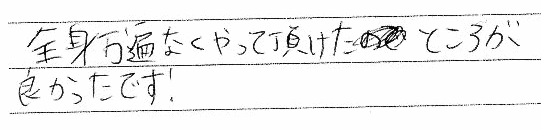 全身万遍なくやって頂けたところが
良かったです!